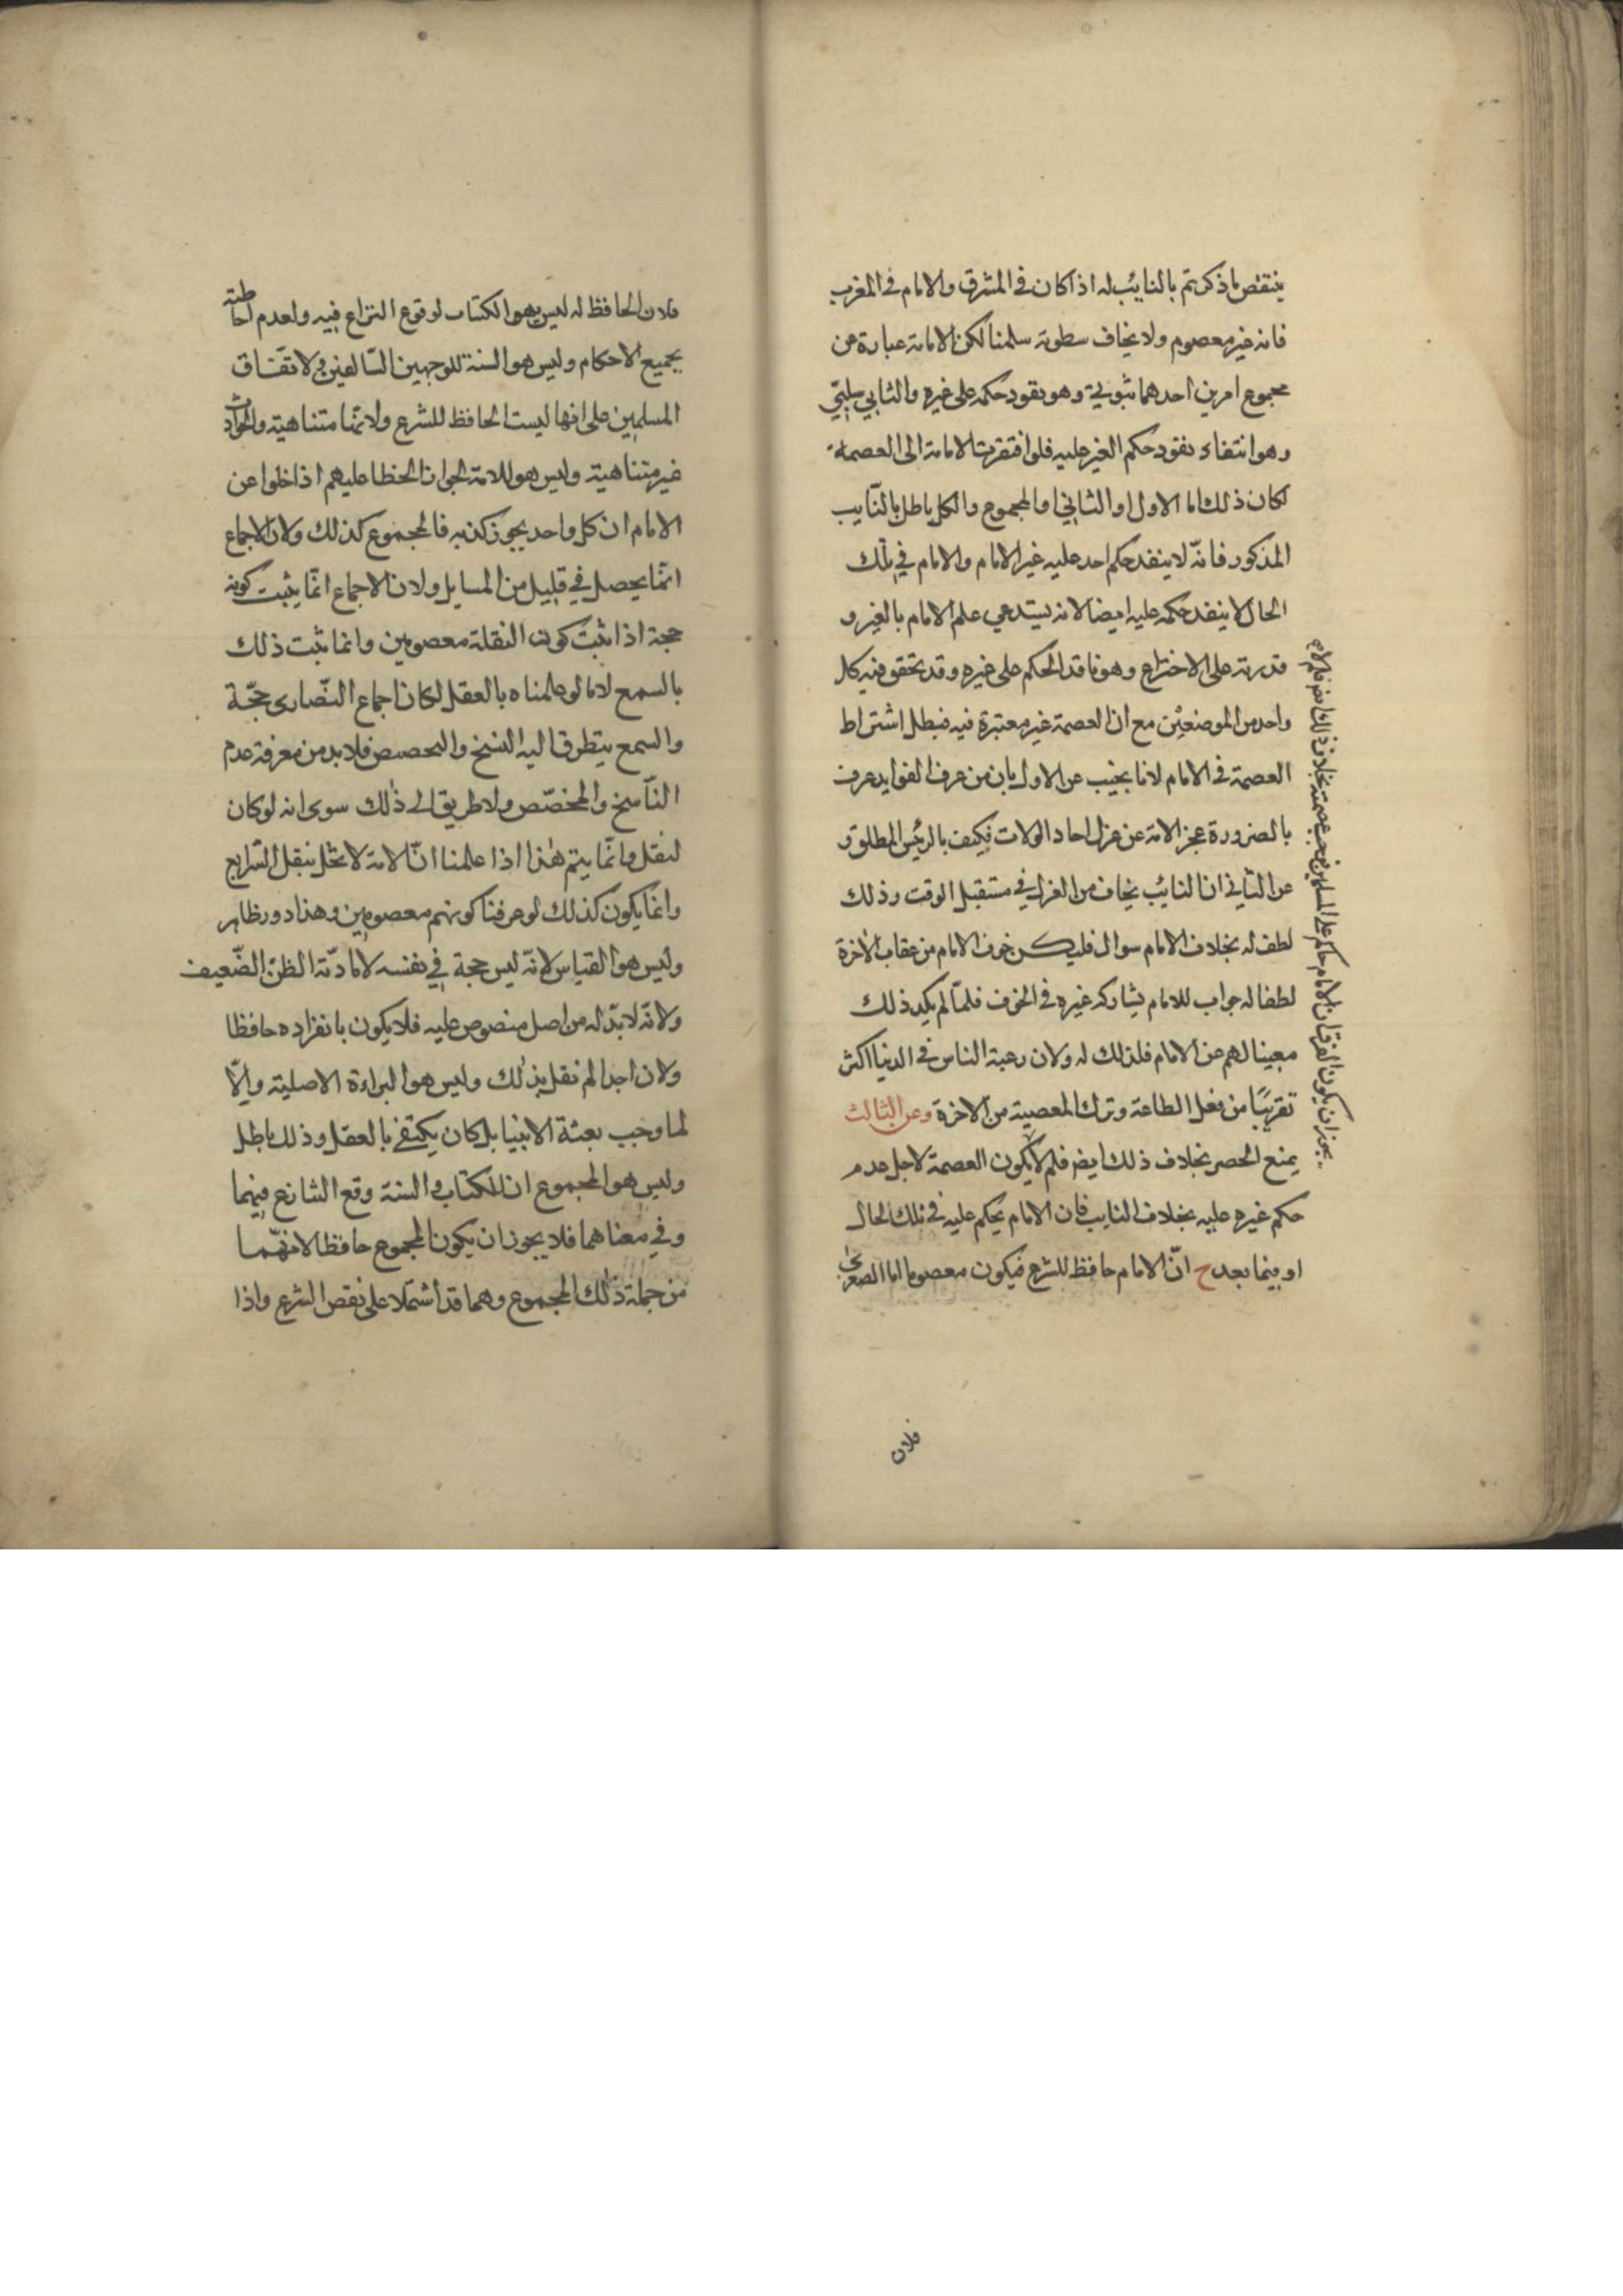 ينتقض ما ذكرتم بالنايب له اذا كان في المشرق والامام في المغرب
فانه غير معصوم ولا يخاف سطوته سلمنا لكن الامامة عبارة عن
مجموع امرين احدهما ثبوتي وهو نفود حكمه على غيره والثاني سلبي
وهو انتفاء نفود حكم الغير عليه فلو افتقرت الامامة الى العصمة
لكان ذلك اما الاول او الثاني او المجموع والكل باطل بالنّايب
المذكور فانّه لا ينفد حكم احد عليه غير الامام والامام في تلك
الحال لا ينفد حكمه عليه ايضا لانه يستدعي علم الامام بالغير و
قدرته على الاختراع وهو نافد الحكم على غيره وقد تحقق فيه كل
واحد من الموضعين مع ان العصمة غير معتبرة فيه فبطل اشتراط
العصمة في الامام لانا نجيب عن الاول بان من عرف الفوايد عرف
بالضرورة عجز الامة عن عزل احاد الولات فكيف بالرئيس المطلق و
عن الثاني ان النائب يخاف من العزل في مستقبل الوقت وذلك
لطف له بخلاف الامام سوال فليكن خوف الامام من عقاب الآخرة
لطفا له جواب للامام يشاركه غيره في الخوف فلمّا لم يكن ذلك
مغنيا لهم عن الامام فلذلك له ولان رغبة الناس في الدنيا اكثر
تقريبًا من فعل الطاعة وترك المعصية من الآخرة وعن الثالث
يمنع الحصر بخلاف ذلك ايض فلم لا يكون العصمة لاجل عدم
حكم غيره عليه بخلاف النايب فان الامام يحكم عليه في تلك الحال
او فيما بعد ح انّ الامام حافظ للشرع فيكون معصوما اما الصغرى
يجوز ان يكون الفرق ان الامام حاكم على المسلمين فيجب عصمته بخلاف ذلك ايض فلم لا
فلان
فلان الحافظ له ليس هو الكتاب لوقوع النزاع فيه ولعدم احاطته
بجميع الاحكام وليس هو السنة للوجهين السّالفين ولاتّفاق
المسلمين على انها ليست الحافظ للشرع ولانّها متناهية والحوادث
غير متناهية وليس هو للامة لجواز الخطا عليهم اذا خلوا عن
الامام ان كل واحد يجوز كذبه فالمجموع كذلك ولان الاجماع
انّما يحصل في قليل من المسايل ولان الاجماع انّما يثبت كونه
حجة اذا ثبت كون النقلة معصومين وانما يثبت ذلك
بالسمع لانا لو علمناه بالعقل لكان اجماع النّصارى حجّة
والسمع يتطرق اليه النسخ والتخصيص فلا بد من معرفة عدم
النّاسخ والمخصّص ولا طريق الى ذلك سوى انه لو كان
لنقل وانّما يتم هذا اذا علمنا انّ الامة لا تخل بنقل الشرايع
وانّما يكون كذلك لو عرفنا كونهم معصومين وهذا دور ظاهر
وليس هو القياس لانّه ليس حجة في نفسه لافادته الظنّ الضّعيف
ولانّه لا بدّ له من اصل منصوص عليه فلا يكون بانفراده حافظا
ولان احدا لم نقل بذلك وليس هو البراءة الاصلية والّا
لما وجب بعثة الانبيا بل كان يكتفى بالعقل وذلك باطل
وليس هو المجموع ان للكتاب والسنة وقع التنازع فيهما
وفي معناهما فلا يجوز ان يكون المجموع حافظا لانّهما
من جملة ذلك المجموع وهما قد اشتملا على نقص الشرع واذا